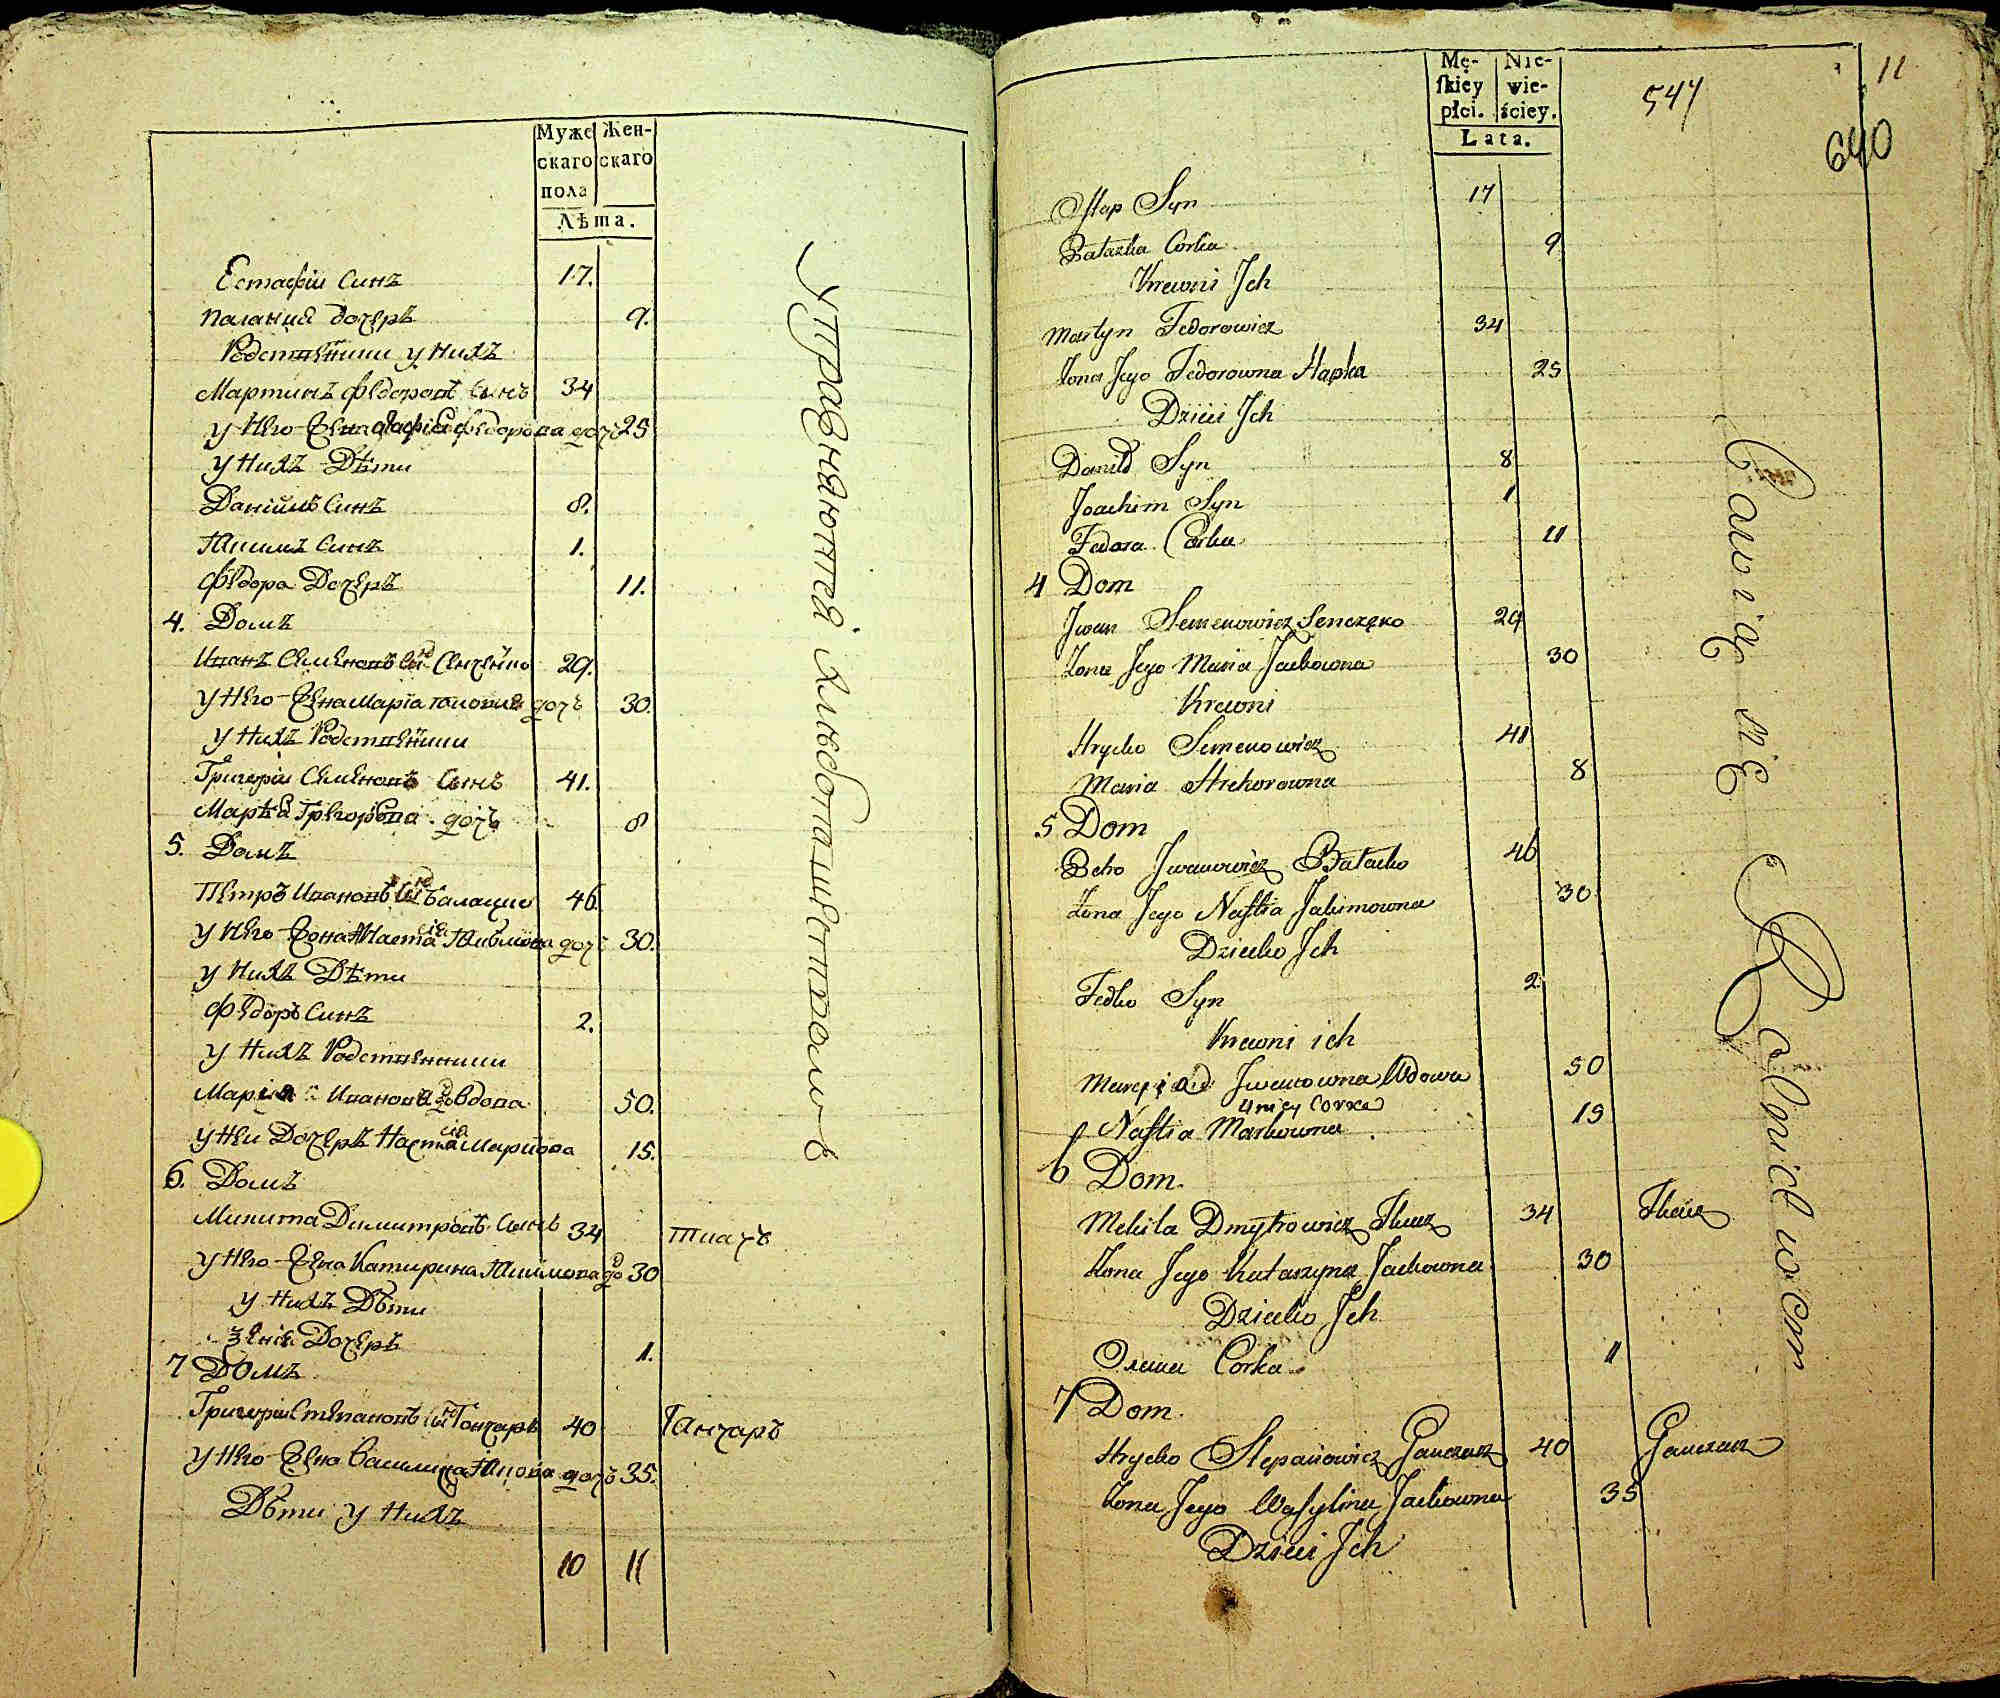 Муже Жен-
скаго скаго
пола
Лѣта.
Естафіи Синъ 17.
Паланија дочеръ 9.
Родственики у Нихъ
Мартинъ Федоровъ Сынъ 34
у Него Жена Агафіа Федорова дочъ 25
у Нихъ Дѣти
Даніилъ Синъ 8.
Якимъ Синъ 1.
Федора Дочеръ 11.
4. Домъ
Иванъ Семеновъ Сынъ Сенченко 29.
у Него Жена Марія Якова дочъ 30.
у Нихъ Родственики
Григорій Семеновъ Сынъ 41.
Григорева дочъ 8
5. Домъ
Петръ Ивановъ Сынъ Балацко 46.
у Него Жена Настасіа Якимова дочъ 30.
у Нихъ Дѣти
Федоръ Синъ 2.
у Нихъ Родственники
Иванова вдова 50.
у Неи Дочеръ Настасіа Маркова 15.
6. Домъ
Микита Димитровъ Сынъ 34 ткачъ
у Него Жена Катирина Якимова до 30
у Нихъ Дѣти
Дочеръ 1.
7 Домъ
Григорій Степановъ Сынъ Гончаръ 40 Ганчаръ
у Него Жена Василина Якова дочъ 35.
Дѣти у Нихъ
10 11
Упражняются хлебопашествомъ
11
547
640
Mę- Nie-
ſkiey wie-
płci. ściey.
Lata.
Ostap Syn 17
Pałazka Corka 9
Krewni Jch
Martyn Fedorowicz 34
Zona Jego Fedorowna Hapka 25
Dzieci Jch
Daniło Syn 8
Joachim Syn 1
Fedora Corka 11
4 Dom
Jwan Semenowicz Senczęko 29
Zona Jego Maria Jackowna 30
Krewni
Hrycko Semenowicz 41
Maria Hrehorowna 8
5 Dom
Petro Jwanowicz Bałacko 46
Zona Jego Naſtia Jakimowna 30
Dziecko Jch
Fedko Syn 2
Krewni ich
Jwanowna Wdowa 50
U niey Corka
Naſtia Markowna 15
6 Dom
Mekita Dmytrowicz Tkacz 34 Tkacz
Zona Jego Katarzyna Jackowna 30
Dziecko Jch
Corka 1
7 Dom
Hrycko Stepanowicz Ganczarz 40 Ganczarz
Zona Jego Waſylina Jackowna 35
Dzieci Jch
Bawią się Rolnictwem